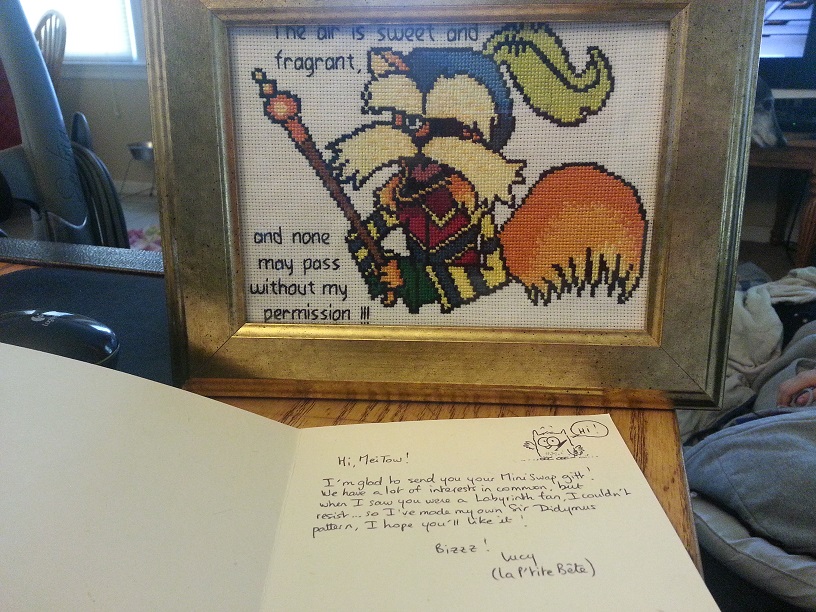 The air is sweet and
fragrant,
and none
may pass
without my
permission !!!
Hi!
Hi, MeiTow!
I'm glad to send you your Mini Swap gift!
We have a lot of interests in common, but
when I saw you were a Labyrinth fan, I couldn't
resist... so I've made my own Sir Didymus
pattern, I hope you'll like it!
Bizzz!
Lucy
(la P'tite Bête)